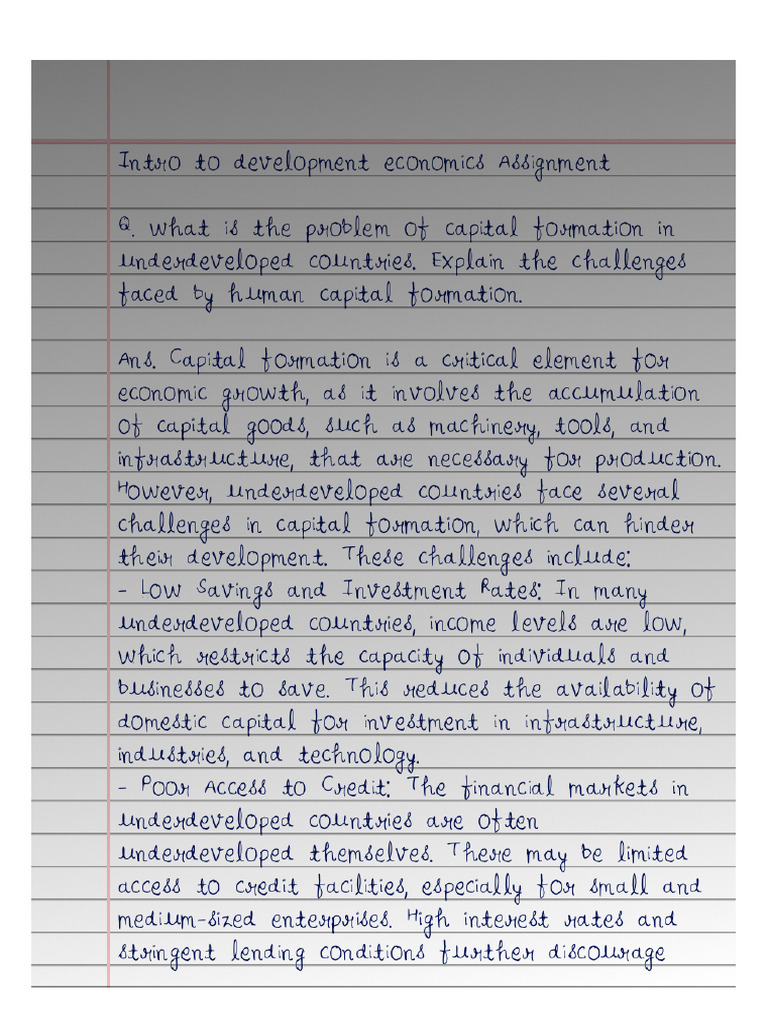 Intro to development economics Assignment
Q. What is the problem of capital formation in
underdeveloped countries. Explain the challenges
faced by human capital formation.
Ans. Capital formation is a critical element for
economic growth, as it involves the accumulation
of capital goods, such as machinery, tools, and
infrastructure, that are necessary for production.
However, underdeveloped countries face several
challenges in capital formation, which can hinder
their development. These challenges include:
- Low Savings and Investment Rates: In many
underdeveloped countries, income levels are low,
which restricts the capacity of individuals and
businesses to save. This reduces the availability of
domestic capital for investment in infrastructure,
industries, and technology.
- Poor Access to Credit: The financial markets in
underdeveloped countries are often
underdeveloped themselves. There may be limited
access to credit facilities, especially for small and
medium-sized enterprises. High interest rates and
stringent lending conditions further discourage